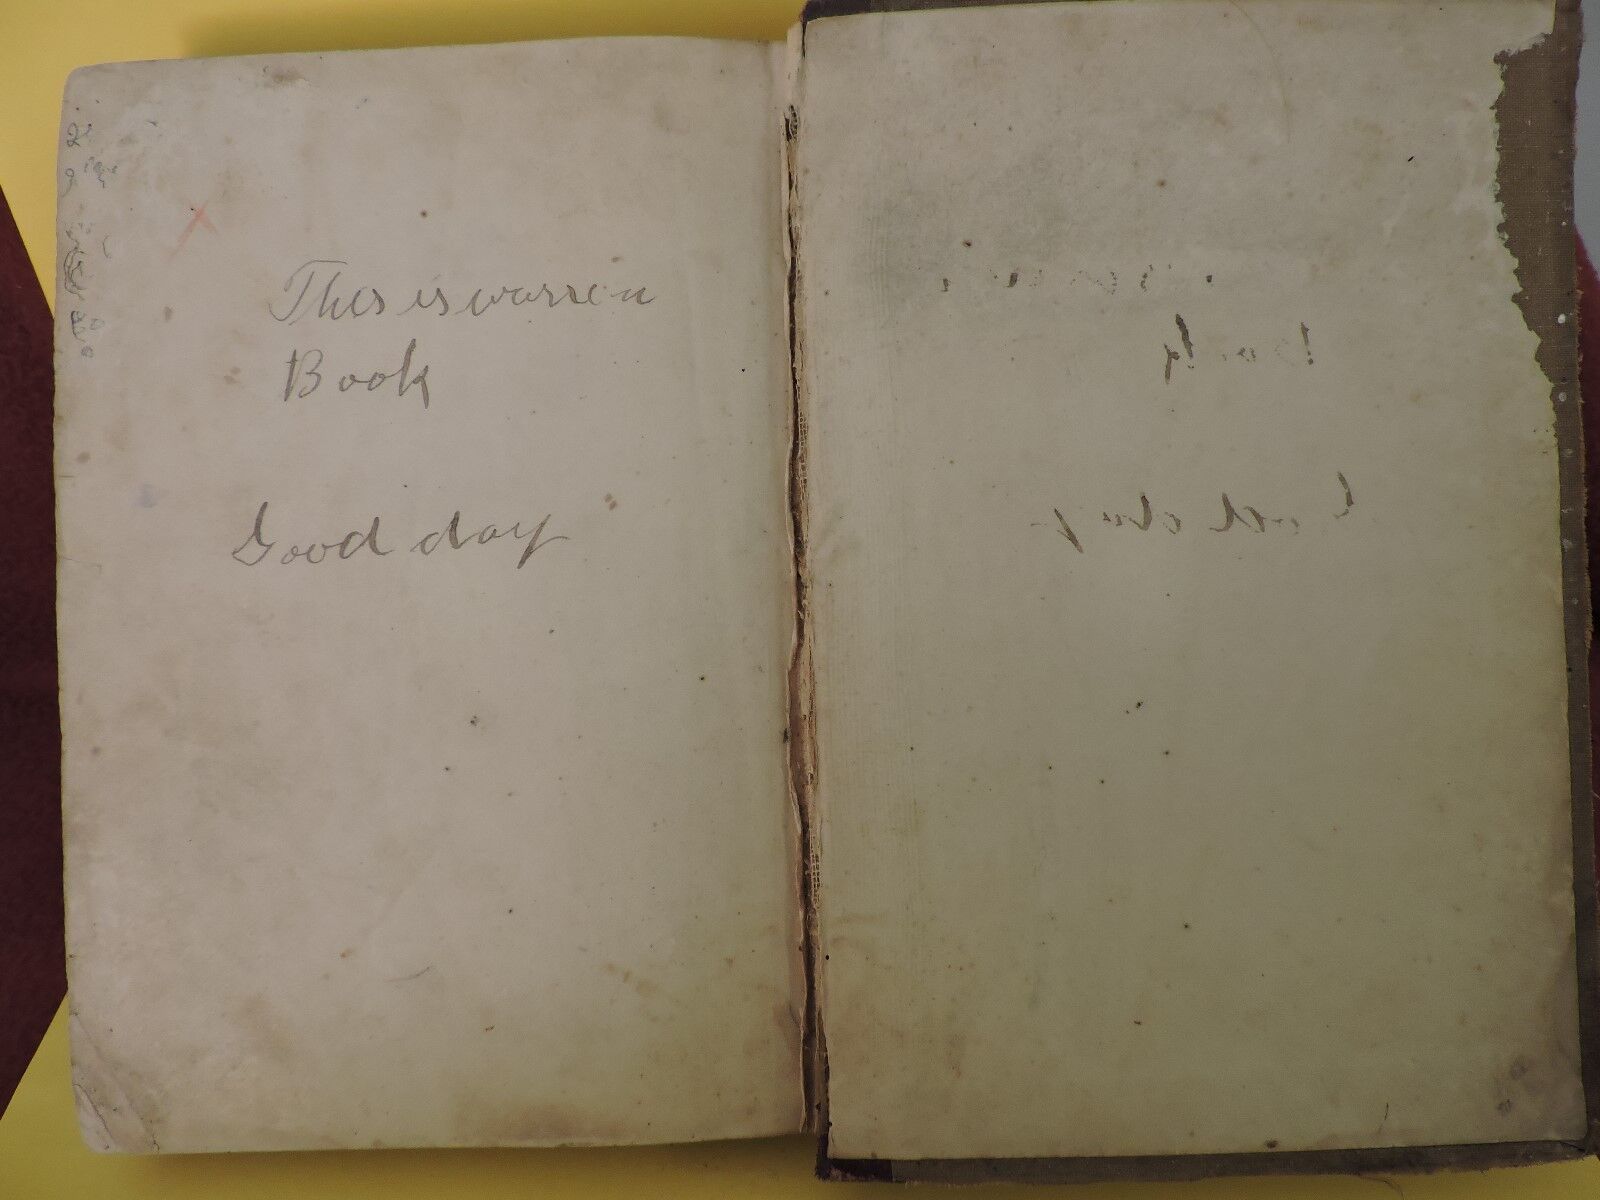 This is warren
Book
Good day